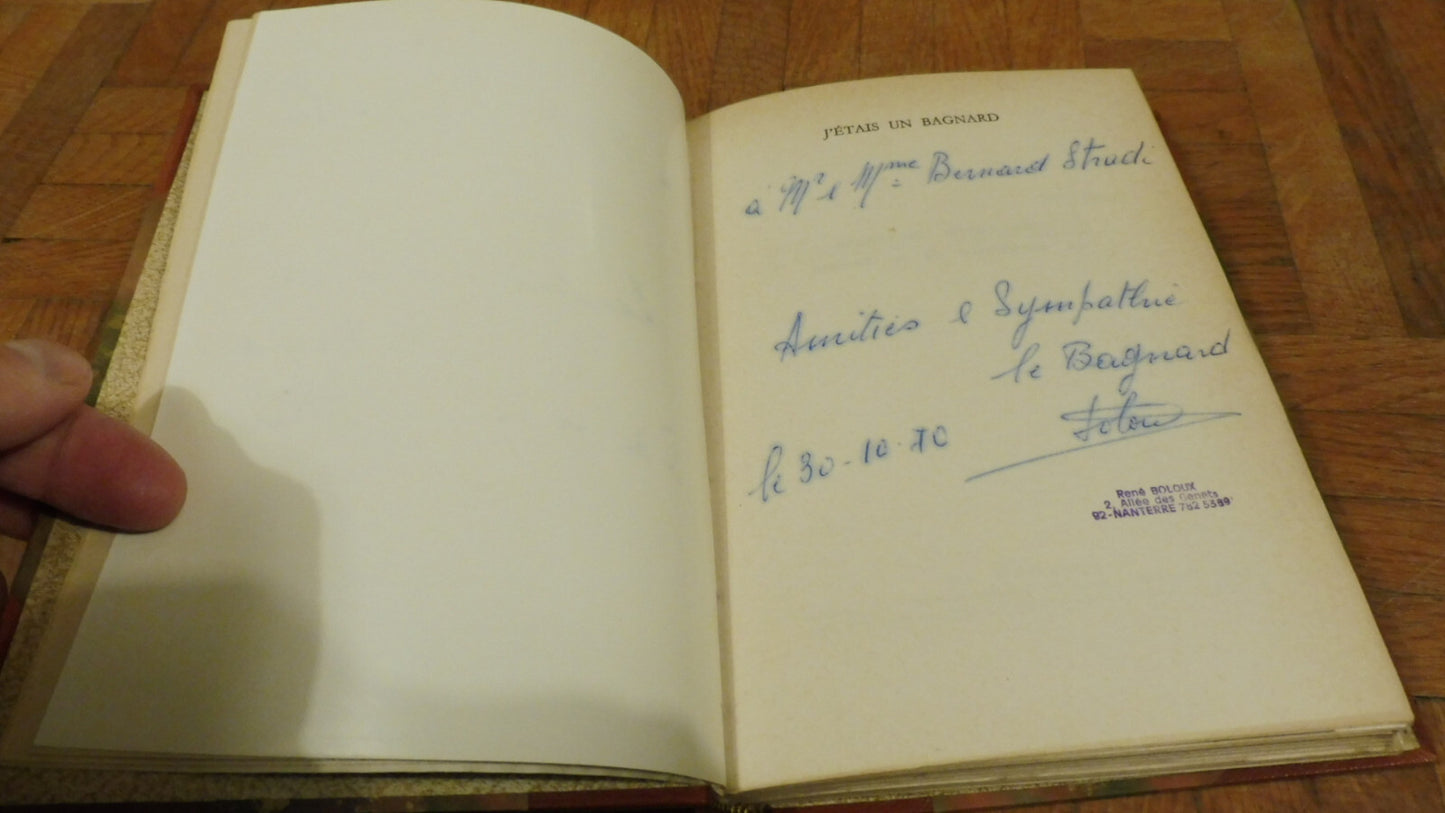 J'ÉTAIS UN BAGNARD
à Mr e Mme Bernard Strudi
Amitiés e Sympathie
le Bagnard
le 30-10-70
René BOLOUX
2, Allée des Genets
92-NANTERRE 782 5589